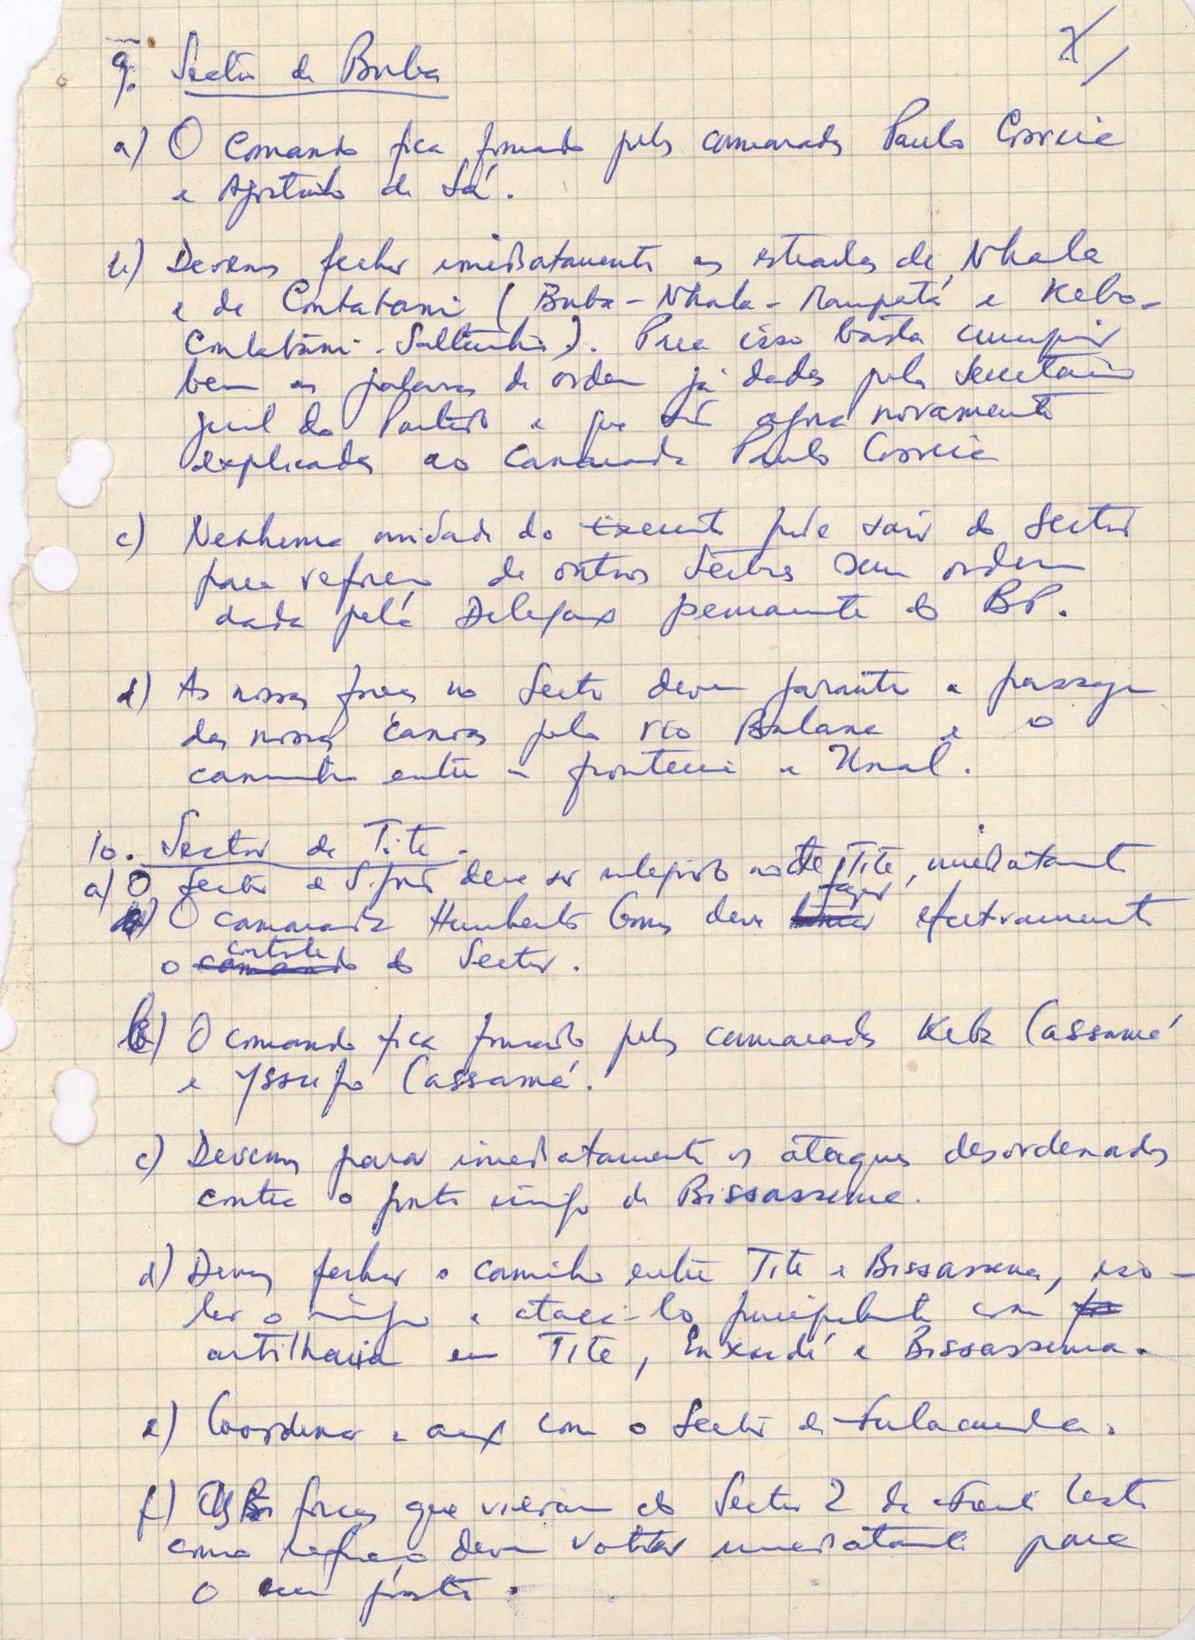 9. Sector de Buba
a) O Comando fica formado pelos camaradas Paulo Correia
e Agostinho de Sá.
b) Devemos fechar imediatamente as estradas de Nhala
e de Contabane (Buba - Nhala - Mampatá e Kebo-
Contabani - Saltinho). Para isso basta cumprir
bem as palavras de ordem já dadas pelo Secretário
geral do Partido e que são agora novamente
explicadas ao Camarada Paulo Correia
c) Nenhuma unidade do Exército pode sair do Sector
para reforço de outros Sectores sem ordem
dada pela Delegação permanente do BP.
d) As nossas forças no Sector devem garantir a passagem
das nossas canoas pelo rio Balana e o
caminho entre a fronteira e Unal.
10. Sector de Tite.
a) O Sector de S. João deve ser integrado no de Tite, imediatamente
O camarada Humberto Gomes deve fazer efectivamente
o controle do Sector.
b) O comando fica formado pelos camaradas Keba Cassamá
e Yssufo Cassamá.
c) Devemos parar imediatamente os ataques desordenados
contra o ponto inimigo de Bissassema.
d) Devemos fechar o caminho entre Tite e Bissassema, iso-
lar o inimigo e atacá-lo principalmente com
artilharia em Tite, Enxudé e Bissassema.
e) Coordenar a acção com o Sector de Fulacunda.
f) As forças que vieram do Sector 2 da Frente Leste
como reforço devem voltar imediatamente para
o seu posto.